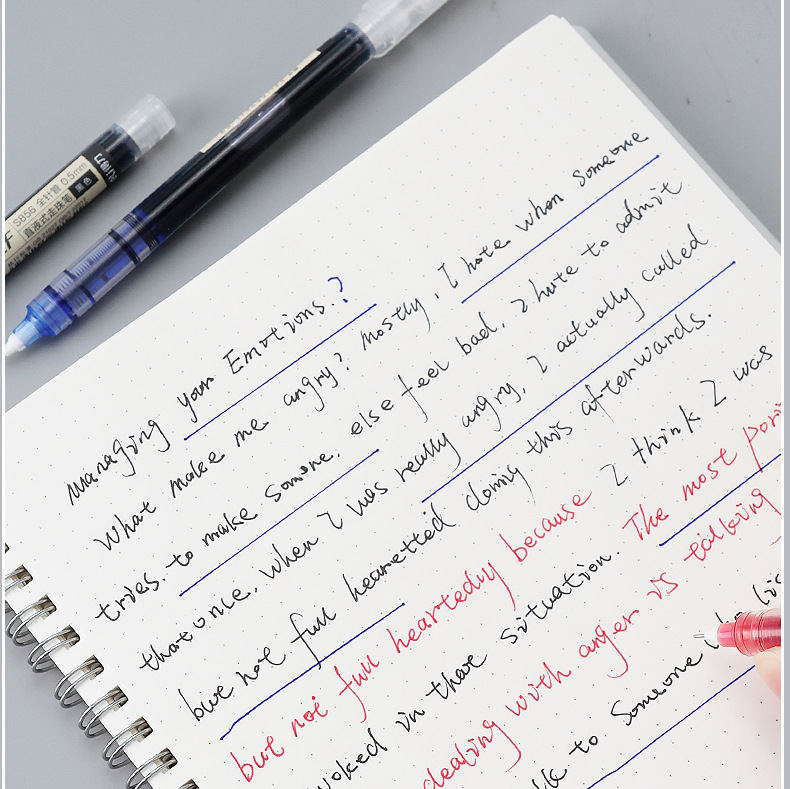 S856 全针管 0.5mm
直液式走珠笔 黑色
managing your Emotions.?
What make me angry? Mostly, I hate when someone
tries. to make somone. else feel bad, I hate to admit
that once, when I was really angry, I actually called
but not full hearetted doing this afterwards.
but not full heartedly because I think I was
voked in that situation. The most posi
dealing with anger is talking
to someone